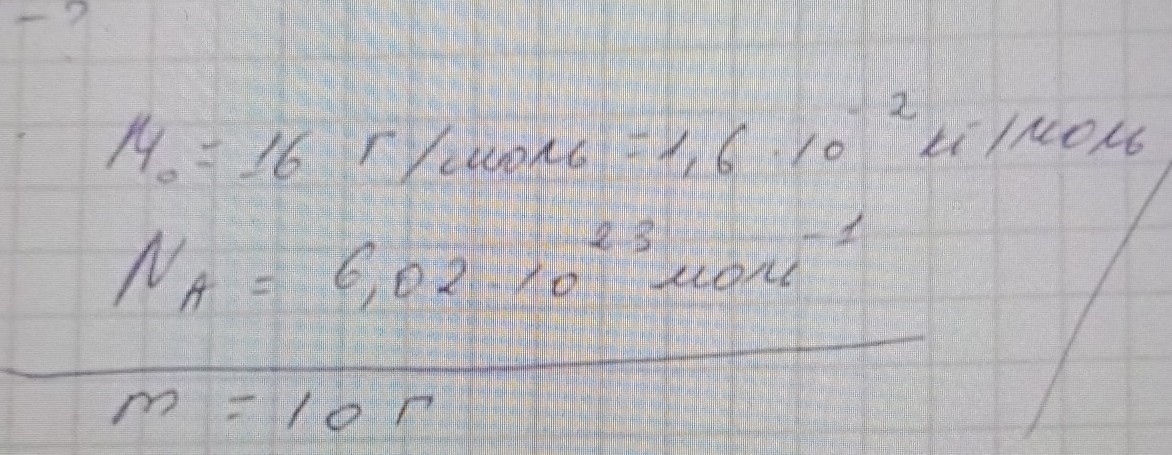 – ?
M₀ = 16 г/моль = 1,6 · 10⁻² кг/моль
N_A = 6,02 · 10²³ моль⁻¹
m = 10 г